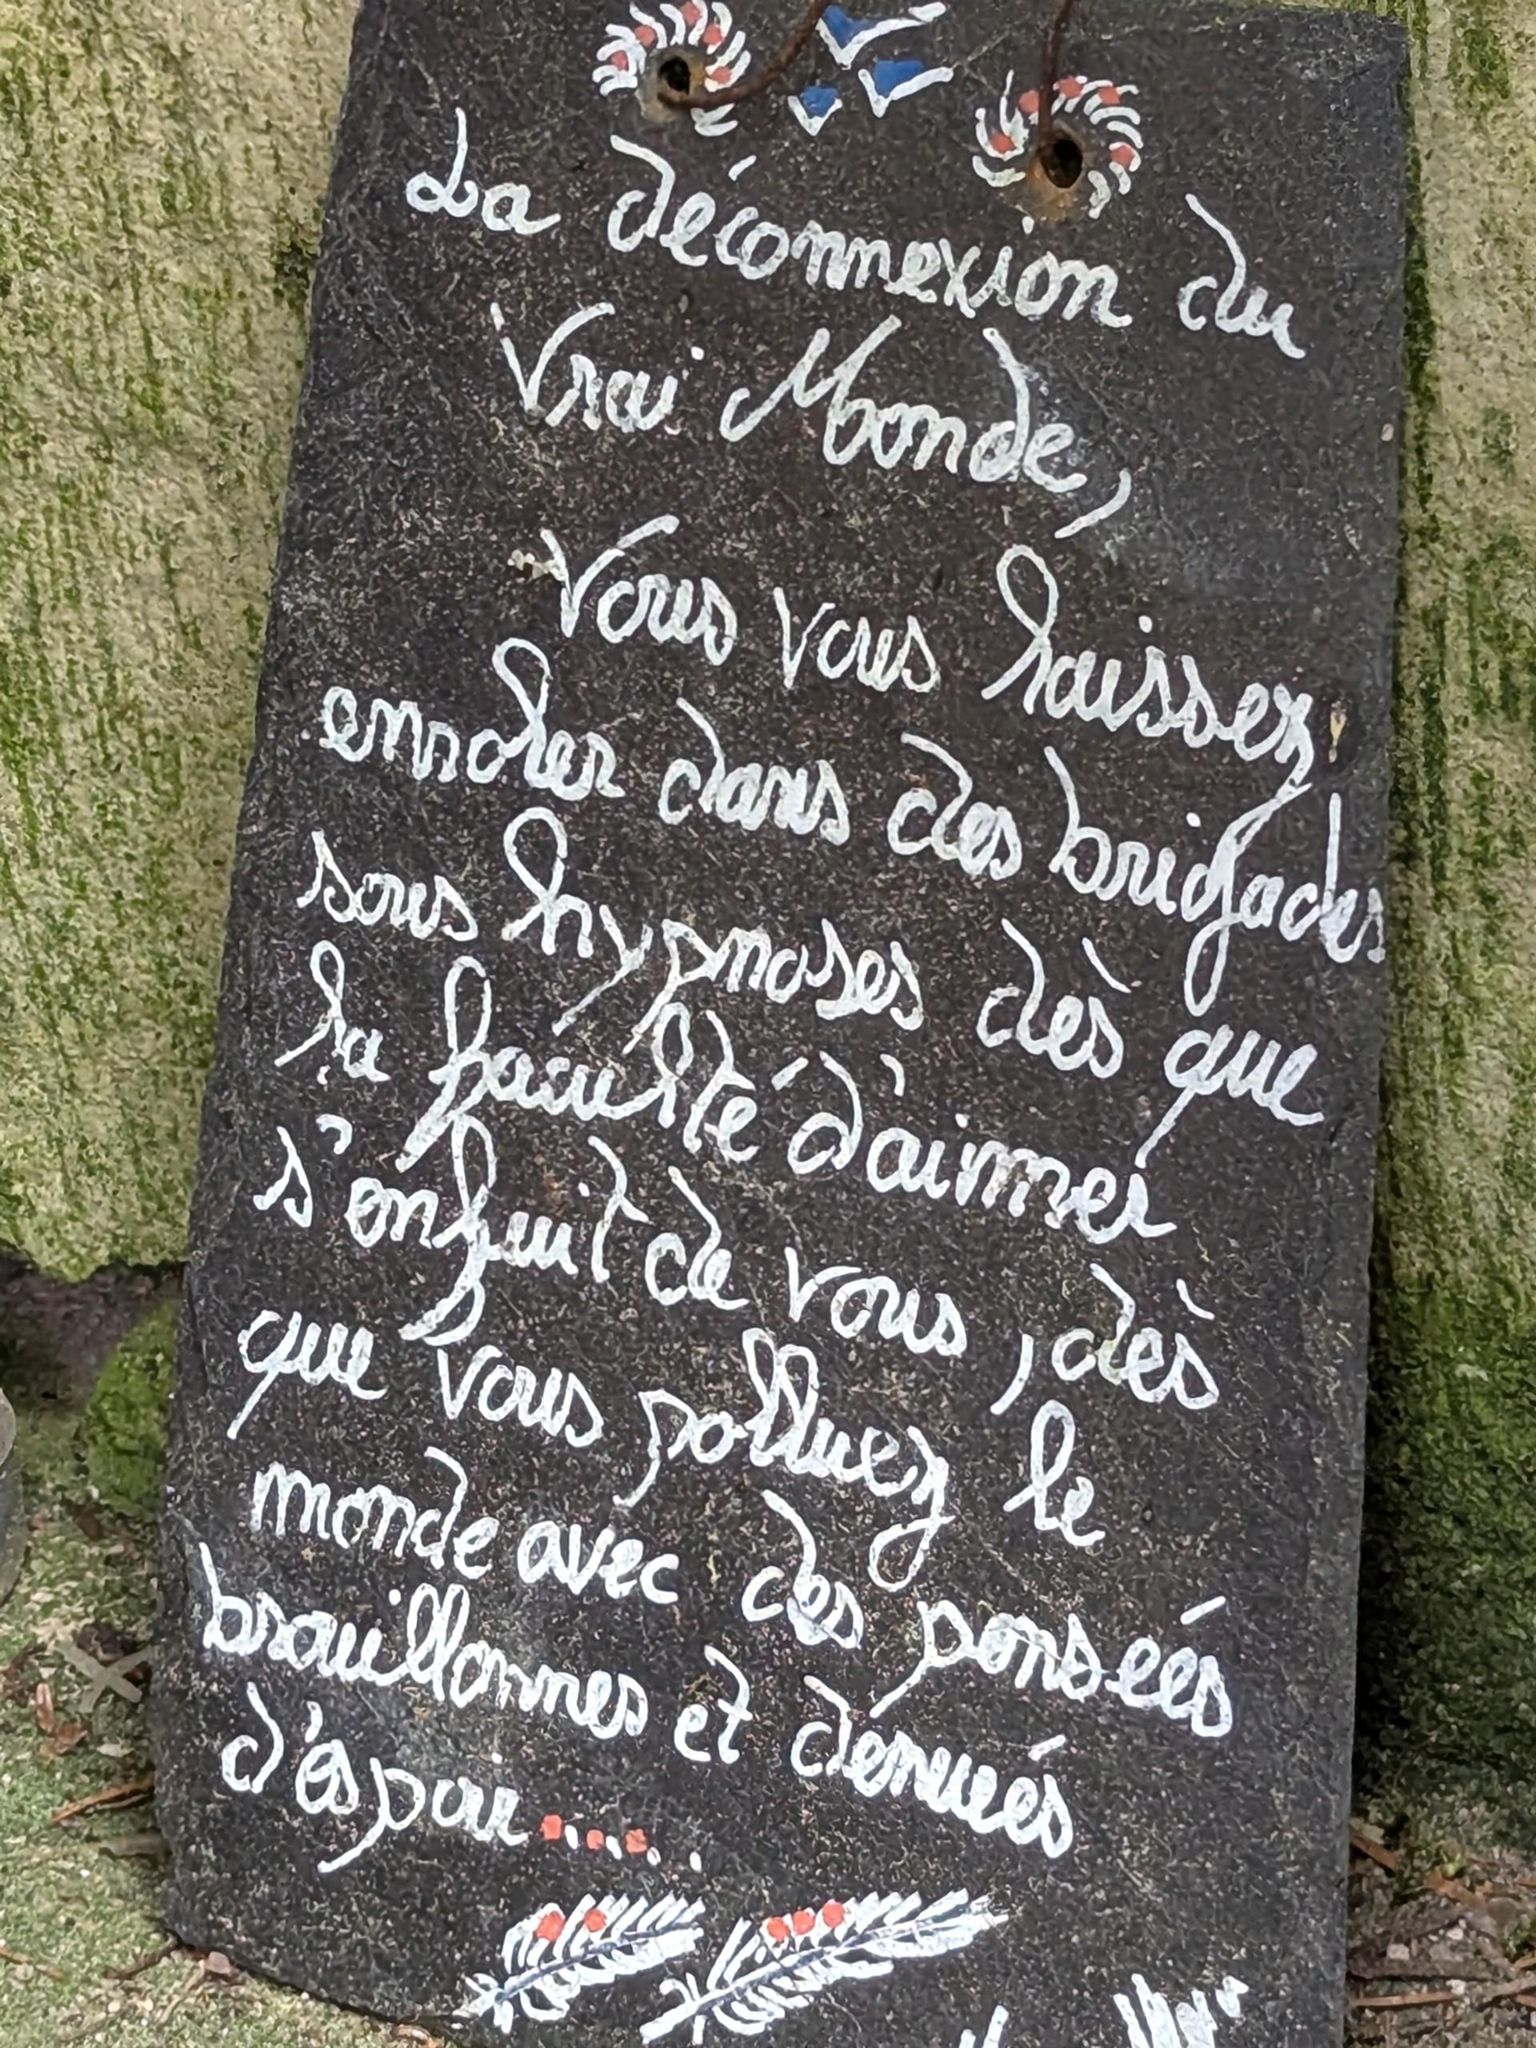 La déconnexion du
Vrai Monde,
Vous vous laissez
enroler dans des brigades
sous hypnoses dès que
la faculté d'aimer
s'enfuit de vous, dès
que vous polluez le
monde avec des pensées
brouillonnes et dénués
d'espoir......